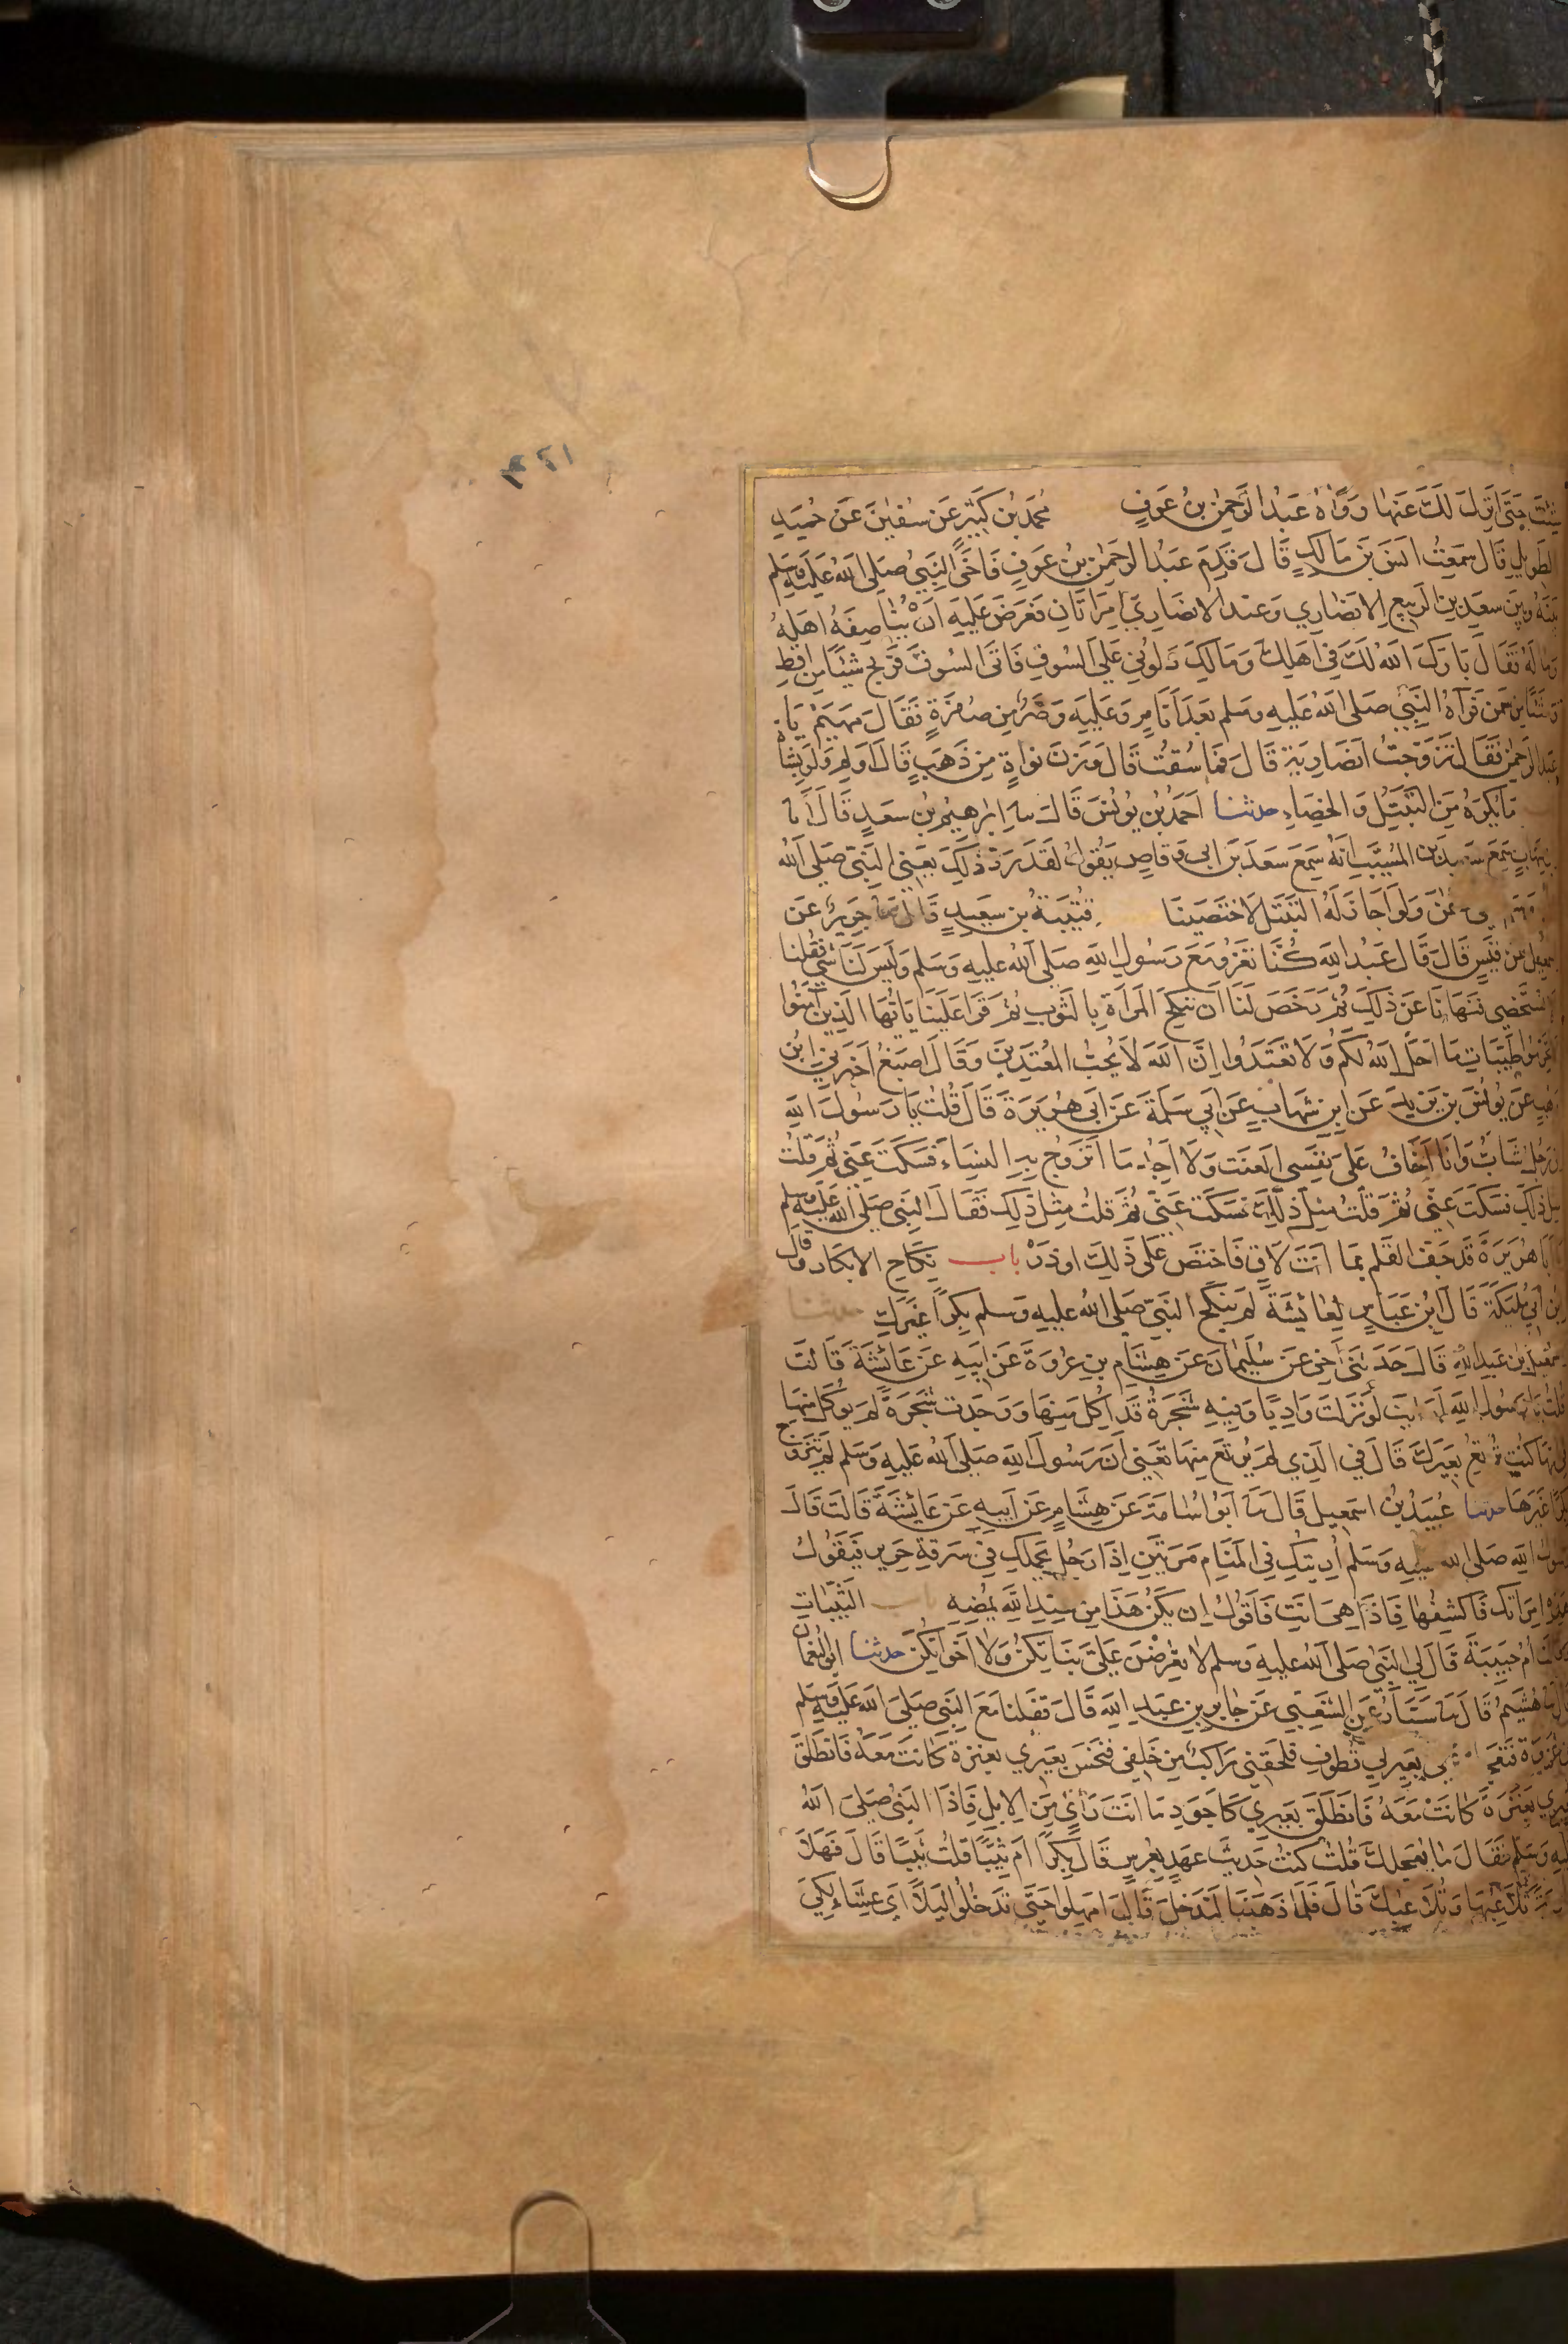 ١٤٣
شئت حتى انزل لك عنها ورواه عبد الرحمن بن عوف محمد بن كثير عن سفين عن حميد
الطويل قال سمعت انس بن مالك قال قدم عبد الرحمن بن عوف فاخى النبي صلى الله عليه وسلم
بينه وبين سعد بن الربيع الانصاري وعند الانصاري امراتان فعرض عليه ان يناصفه اهله
وماله فقال بارك الله لك في اهلك ومالك دلوني على السوق فاتى السوق فربح شيئا من اقط
وشيئا من سمن فراه النبي صلى الله عليه وسلم بعد ايام وعليه وضر من صفرة فقال مهيم يا
عبد الرحمن فقال تزوجت انصارية قال فما سقت قال وزن نواة من ذهب قال اولم ولو بشاة
ما يكره من التبتل والخصاء حدثنا احمد بن يونس قال نا ابرهيم بن سعد قال انا
شهاب سمع سعيد بن المسيب انه سمع سعد بن ابي وقاص يقول لقد رد ذلك يعني النبي صلى الله
ولو اجاز له التبتل لاختصينا قتيبة بن سعيد قال ثنا جرير عن
اسمعيل عن قيس قال قال عبد الله كنا نغزو مع رسول الله صلى الله عليه وسلم وليس لنا شي فقلنا
الا نستخصي فنهانا عن ذلك ثم رخص لنا ان ننكح المراة بالثوب ثم قرا علينا يايها الذين امنوا
لا تحرموا طيبات ما احل الله لكم ولا تعتدوا ان الله لا يحب المعتدين وقال اصبغ اخبرني ابن
وهب عن يونس بن يزيد عن ابن شهاب عن ابي سلمة عن ابي هريرة قال قلت يا رسول الله
اني رجل شاب وانا اخاف على نفسي العنت ولا اجد ما اتزوج به النساء فسكت عني ثم قلت
مثل ذلك فسكت عني ثم قلت مثل ذلك فسكت عني ثم قلت مثل ذلك فقال النبي صلى الله عليه وسلم
يا ابا هريرة قد جف القلم بما انت لاق فاختص على ذلك او ذر باب نكاح الابكار وقال
ابن ابي مليكة قال ابن عباس لعائشة لم ينكح النبي صلى الله عليه وسلم بكرا غيرك حدثنا
اسمعيل بن عبد الله قال حدثني اخي عن سليمان عن هشام بن عروة عن ابيه عن عائشة قالت
قلت يا رسول الله ارايت لو نزلت واديا وفيه شجرة قد اكل منها ووجدت شجرة لم يوكل منها
في ايها كنت ترتع بعيرك قال في الذي لم يرتع منها تعني ان رسول الله صلى الله عليه وسلم لم يتزوج
بكرا غيرها حدثنا عبيد بن اسمعيل قال نا ابو اسامة عن هشام عن ابيه عن عائشة قالت قال
رسول الله صلى الله عليه وسلم اريتك في المنام مرتين اذا رجل يحملك في سرقة حرير فيقول
هذه امراتك فاكشفها فاذا هي انت فاقول ان يكن هذا من عند الله يمضه باب الثيبات
وقالت ام حبيبة قال لي النبي صلى الله عليه وسلم لا تعرضن علي بناتكن ولا اخواتكن حدثنا ابو النعمان
قال نا هشيم قال نا سيار عن الشعبي عن جابر بن عبد الله قال قفلنا مع النبي صلى الله عليه وسلم
من غزوة فتعجلت على بعير لي قطوف فلحقني راكب من خلفي فنخس بعيري بعنزة كانت معه فانطلق
بعيري بعنزة كانت معه فانطلق بعيري كاجود ما انت راي من الابل فاذا النبي صلى الله
عليه وسلم فقال ما يعجلك قلت كنت حديث عهد بعرس قال بكرا ام ثيبا قلت ثيبا قال فهلا
جارية تلاعبها وتلاعبك قال فلما ذهبنا لندخل قال امهلوا حتى تدخلوا ليلا اي عشاء لكي